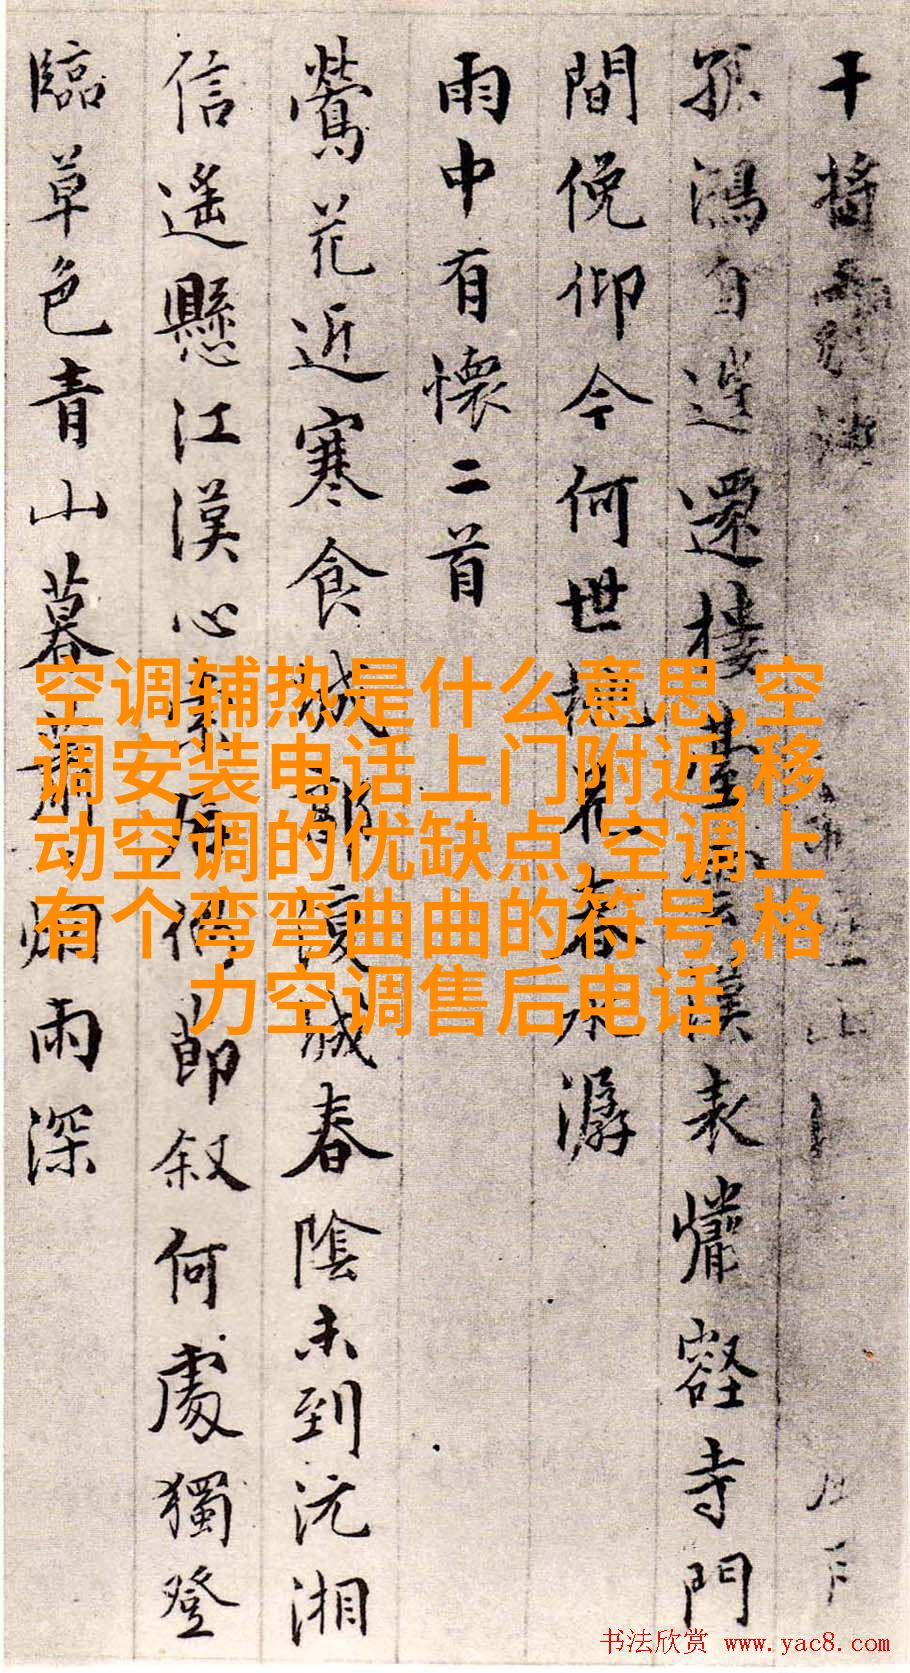 干將
孤鴻自還樓臺漢表壑寺門
間俛仰今何世桃花春水潺
雨中有懷二首
鶯花近寒食城郭城春陰未到沅湘
信遙懸江漢心居節叙何處獨登
臨草色青山暮蕭烟雨深
空调辅热是什么意思,空
调安装电话上门附近,移
动空调的优缺点,空调上
有个弯弯曲曲的符号,格
力空调售后电话
书法欣赏 www.yac8.com